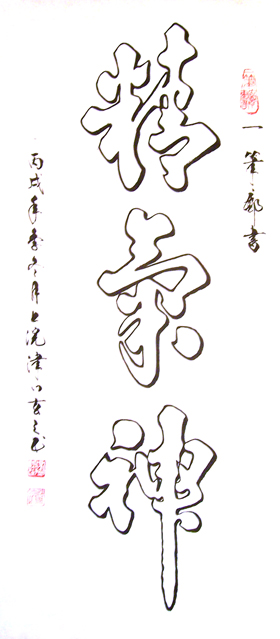 一筆廓書
精氣神
丙戌年季冬月上浣津